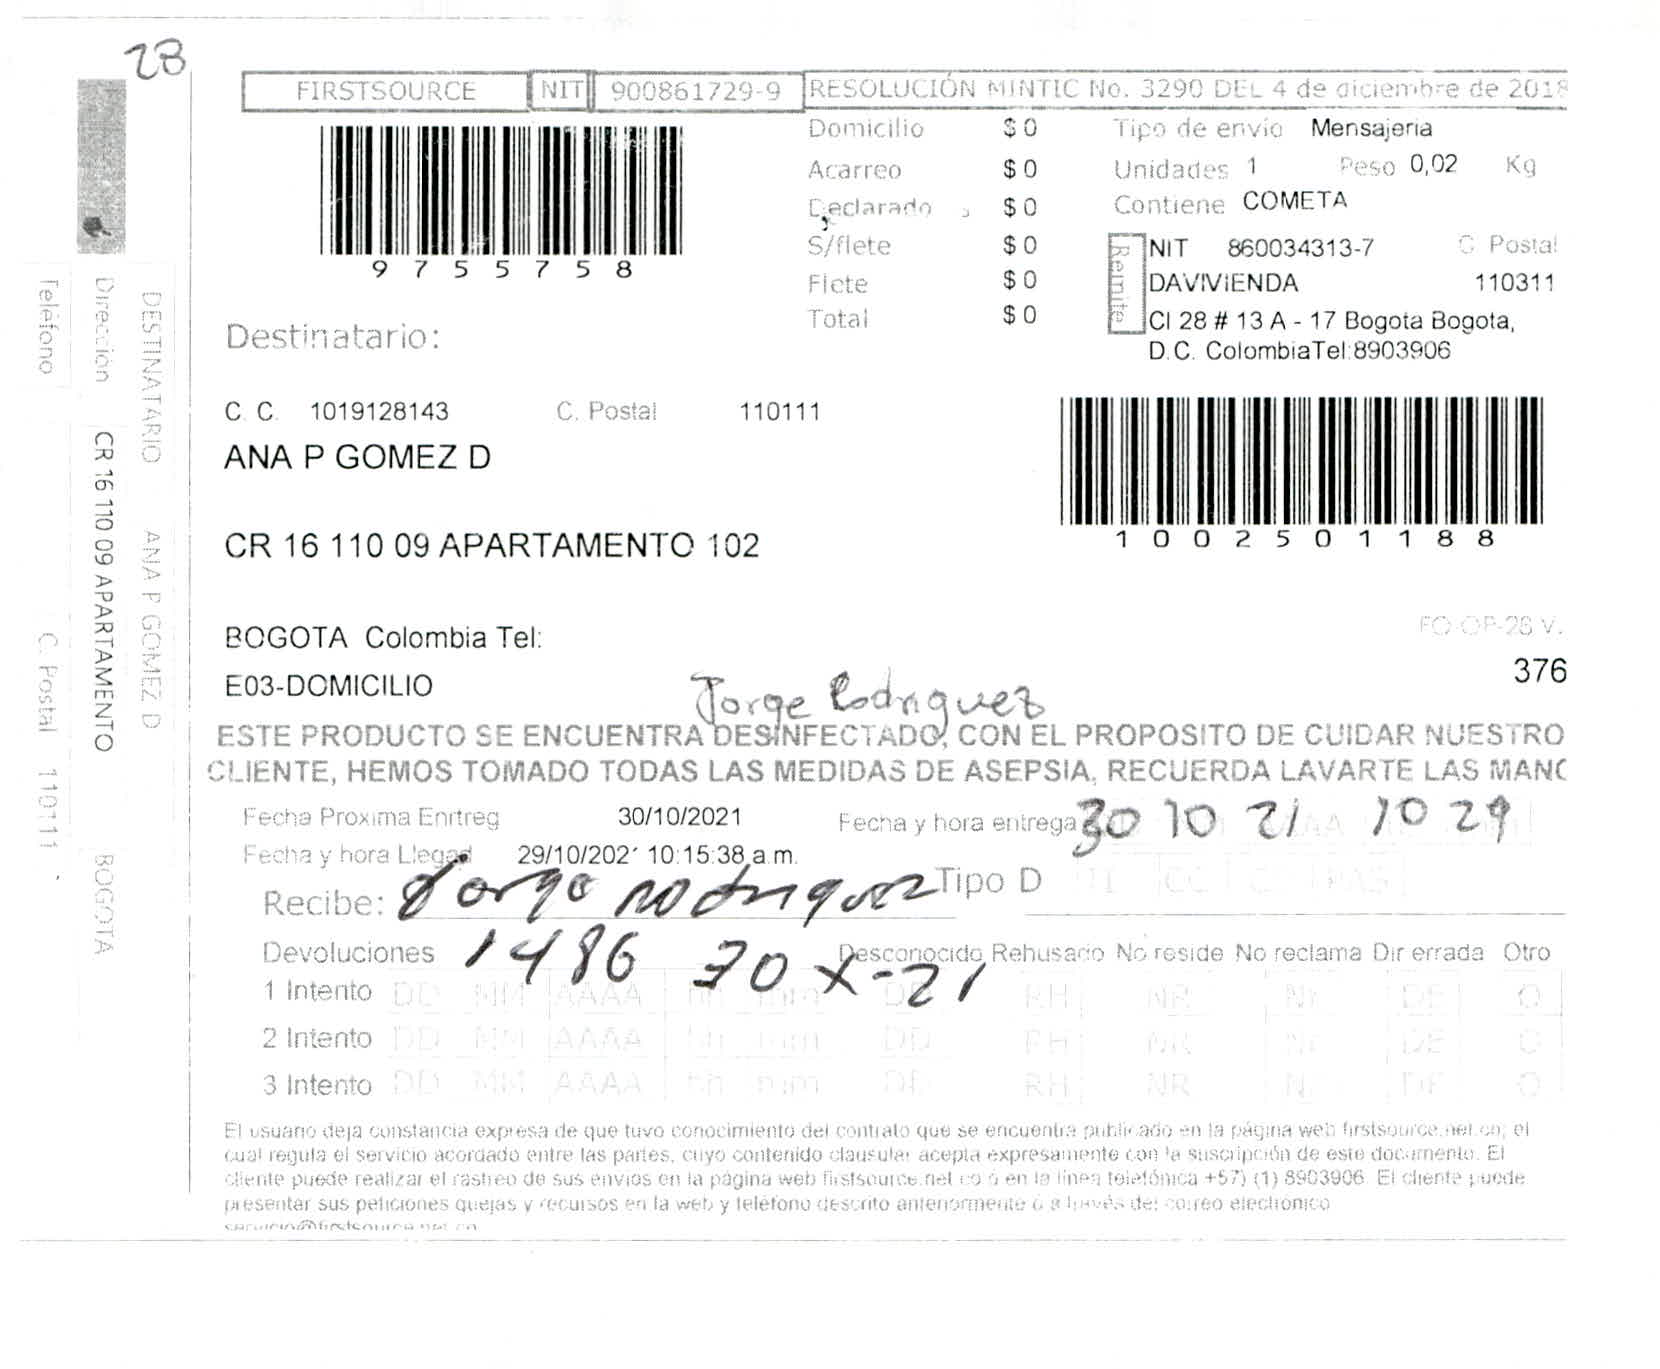 28
FIRSTSOURCE NIT 900861729-9 RESOLUCIÓN MINTIC No. 3290 DEL 4 de diciembre de 2018
9755758
Domicilio $ 0
Acarreo $ 0
Declarado $ 0
S/flete $ 0
Flete $ 0
Total $ 0
Tipo de envio Mensajeria
Unidades 1 Peso 0,02 Kg
Contiene COMETA
Remite
NIT 860034313-7 C Postal
DAVIVIENDA 110311
Cl 28 # 13 A - 17 Bogota Bogota,
D.C. ColombiaTel:8903906
Destinatario:
C. C. 1019128143 C. Postal 110111
ANA P GOMEZ D
1002501188
CR 16 110 09 APARTAMENTO 102
BOGOTA Colombia Tel:
FO-OP-28 V.
376
E03-DOMICILIO
Jorge Rodriguez
ESTE PRODUCTO SE ENCUENTRA DESINFECTADO, CON EL PROPOSITO DE CUIDAR NUESTRO
CLIENTE, HEMOS TOMADO TODAS LAS MEDIDAS DE ASEPSIA, RECUERDA LAVARTE LAS MANO
Fecha Proxima Enrtreg 30/10/2021 Fecha y hora entrega 30 10 21 10 29
Fecha y hora Llegad 29/10/202 10:15:38 a.m.
Recibe: Jorge rodriguez Tipo D TI CC C PAS
1486 30 X-21
Devoluciones Desconocido Rehusado No reside No reclama Dir errada Otro
1 Intento DD MM AAAA hh mm DD RH NR NI DE O
2 Intento DD MM AAAA hh mm DD RH NR NI DE O
3 Intento DD MM AAAA hh mm DD RH NR NI DE O
El usuario deja constancia expresa de que tuvo conocimiento del contrato que se encuentra publicado en la página web firstsource.net.co; el
cual regula el servicio acordado entre las partes, cuyo contenido clausular acepta expresamente con la suscripción de este documento. El
cliente puede realizar el rastreo de sus envios en la página web firstsource.net.co ó en la línea telefónica +57) (1) 8903906. El cliente puede
presentar sus peticiones quejas y recursos en la web y teléfono descrito anteriormente ó a través del correo electrónico
servicio@firstsource.net.co
DESTINATARIO ANA P GOMEZ D
Dirección CR 16 110 09 APARTAMENTO BOGOTA
Teléfono C. Postal 110111